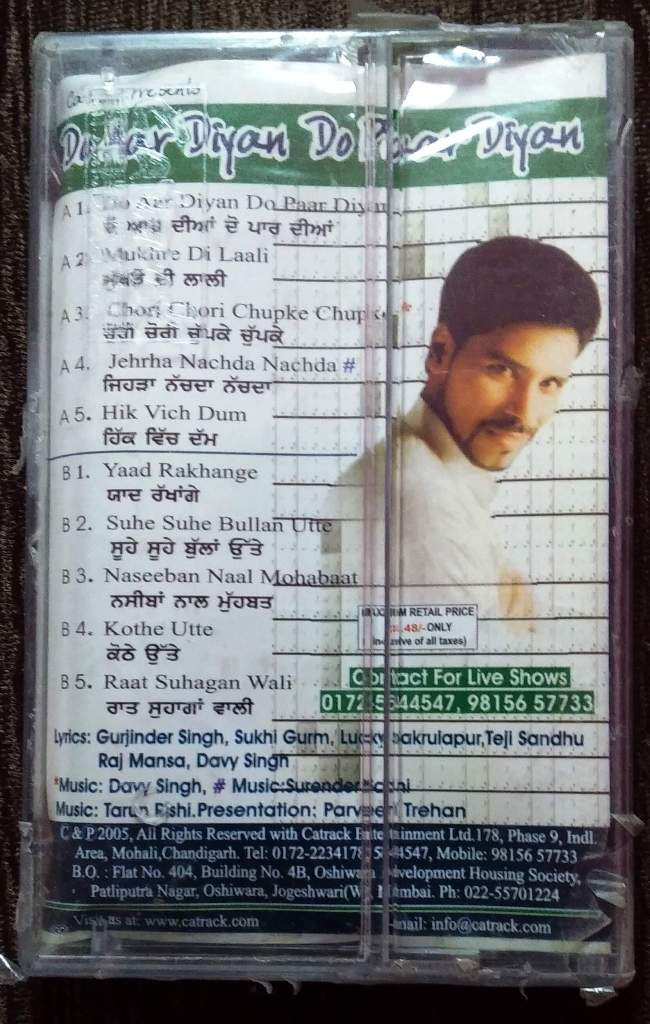 Presents
Do Aar Diyan Do Paar Diyan
A 1. Do Aar Diyan Do Paar Diyan
ਦੋ ਆਰ ਦੀਆਂ ਦੋ ਪਾਰ ਦੀਆਂ
A 2. Mukhre Di Laali
ਮੁੱਖੜੇ ਦੀ ਲਾਲੀ
A 3. Chori Chori Chupke Chupke *
ਚੋਰੀ ਚੋਰੀ ਚੁੱਪਕੇ ਚੁੱਪਕੇ
A 4. Jehrha Nachda Nachda #
ਜਿਹੜਾ ਨੱਚਦਾ ਨੱਚਦਾ
A 5. Hik Vich Dum
ਹਿੱਕ ਵਿੱਚ ਦੱਮ
B 1. Yaad Rakhange
ਯਾਦ ਰੱਖਾਂਗੇ
B 2. Suhe Suhe Bullan Utte
ਸੂਹੇ ਸੂਹੇ ਬੁੱਲਾਂ ਉੱਤੇ
B 3. Naseeban Naal Mohabaat
ਨਸੀਬਾਂ ਨਾਲ ਮੁੱਹਬਤ
B 4. Kothe Utte
ਕੋਠੇ ਉੱਤੇ
B 5. Raat Suhagan Wali
ਰਾਤ ਸੁਹਾਗਾਂ ਵਾਲੀ
MAXIMUM RETAIL PRICE
Rs. 48/- ONLY
(inclusive of all taxes)
Contact For Live Shows
0172-5544547, 98156 57733
Lyrics: Gurjinder Singh, Sukhi Gurm, Lucky Teji Sandhu
Raj Mansa, Davy Singh
*Music: Davy Singh, # Music: Surender
Music: Tarun Rishi. Presentation: Parveen Trehan
C & P 2005, All Rights Reserved with Catrack Entertainment Ltd. 178, Phase 9, Indl.
Area, Mohali, Chandigarh. Tel: 0172-2234178, 5544547, Mobile: 98156 57733
B.O. : Flat No. 404, Building No. 4B, Oshiwara Development Housing Society,
Patliputra Nagar, Oshiwara, Jogeshwari(W), Mumbai. Ph: 022-55701224
Visit us at: www.catrack.com
Email: info@catrack.com